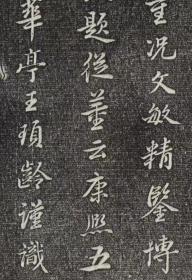 况文敏精鑒博
題從董云康熙五
華亭王頊齡謹識